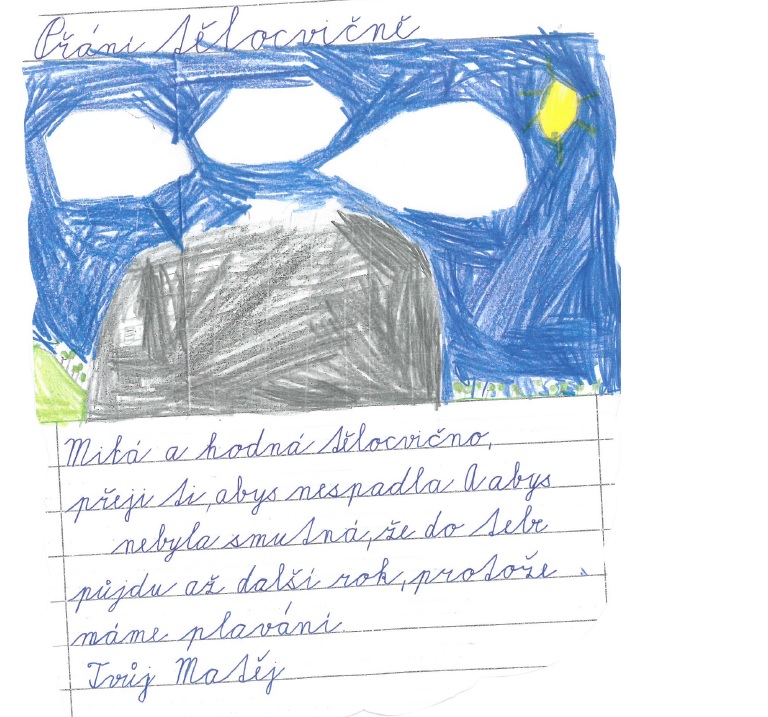 Přání tělocvičně
Milá a hodná tělocvično,
přeji ti, abys nespadla a abys
nebyla smutná, že do tebe
půjdu až další rok, protože
máme plavání.
Tvůj Matěj